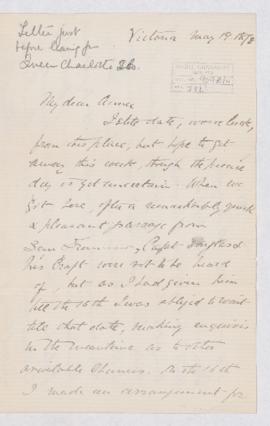 Letter just
before leaving for
Queen Charlotte Is.
Victoria May 19. 1878
My dear Anna
I still date, we are here,
from this place, but hope to get
away this week, though the precise
day is yet uncertain. When we
got here, after a remarkably quick
& pleasant passage from
San Francisco, Capt Douglas &
his Craft were not to be heard
of, but as I had given him
till the 15th I was obliged to wait
till that date, making enquiries
in the meantime as to other
available chances. On the 16th
I made an arrangement for